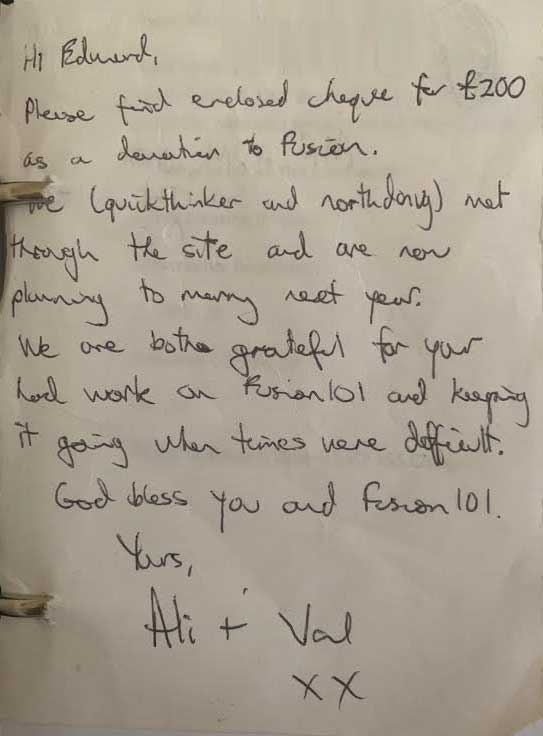 Hi Edward,
Please find enclosed cheque for £200
as a donation to fusion.
We (quickthinker and northdavy) met
through the site and are now
planning to marry next year.
We are both grateful for your
hard work on fusion101 and keeping
it going when times were difficult.
God bless you and fusion101.
Yours,
Ali + Val
xx